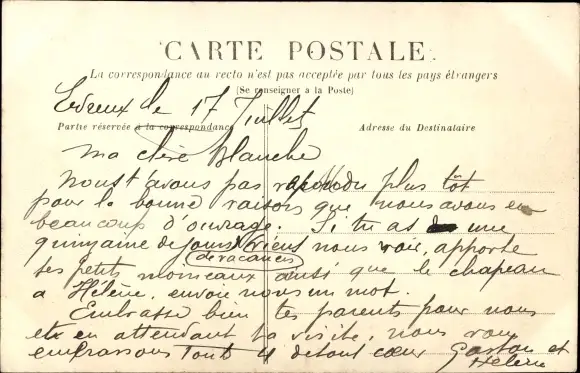 CARTE POSTALE
La correspondance au recto n'est pas acceptée par tous les pays étrangers
(Se renseigner à la Poste)
Evreux le 17 Juillet
Partie réservée à la correspondance
Adresse du Destinataire
Ma chère Blanche
Nous t'avons pas répondu plus tôt
pour la bonne raison que nous avons eu
beaucoup d'ouvrage. Si tu as une
quinzaine de jours viens nous voir, apporte
de vacances
tes petits morceaux ainsi que le chapeau
a Hélène, envoie nous un mot.
Embrasse bien tes parents pour nous
et en attendant ta visite, nous vous
embrassons tout 4 de tout cœur Gaston et
Hélène